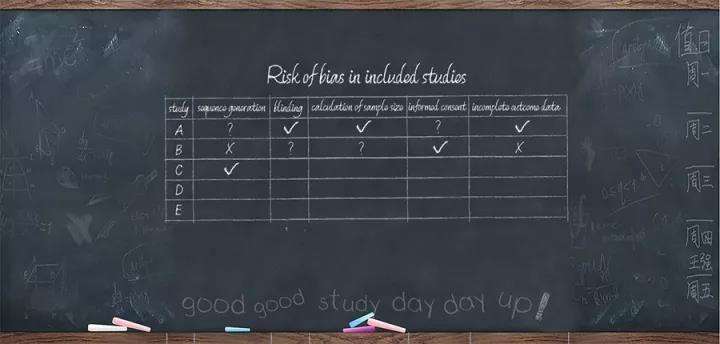 Risk of bias in included studies
study sequence generation blinding calculation of sample size informed consent incomplete outcome data
A ? ✓ ✓ ? ✓
B X ? ? ✓ X
C ✓
D
E
good good study day day up!
值日
周一
周二
周三
周四
王强
周五